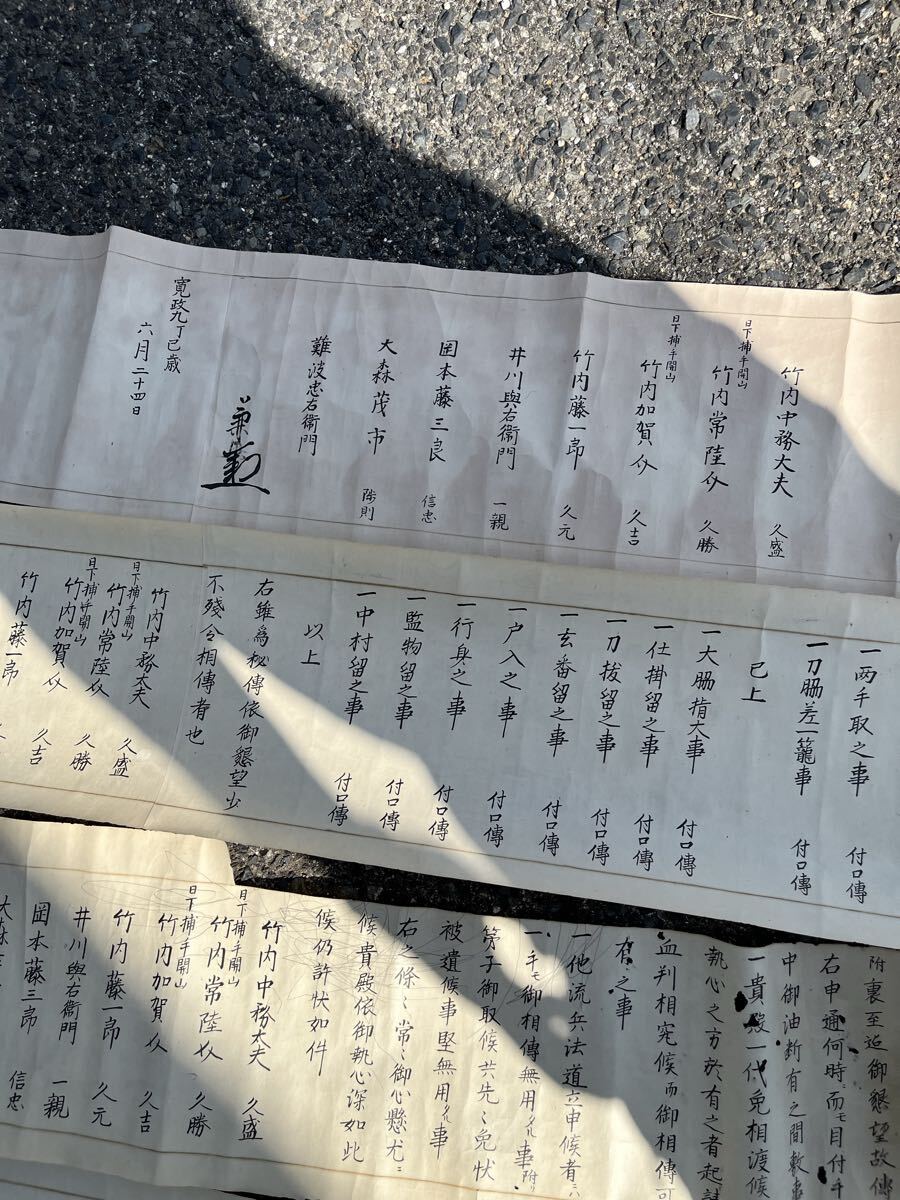 竹内中務大夫 久盛
日下捕手開山
竹内常陸介 久勝
日下捕手開山
竹内加賀介 久吉
竹内藤一郎 久元
井川與右衞門 一親
岡本藤三良 信忠
大森茂市
難波忠右衞門
寛政九丁巳歳
六月二十四日
一両手取之事 付口傳
一刀脇差二籠事 付口傳
已上
一大脇指大事 付口傳
一仕掛留之事 付口傳
一刀拔留之事 付口傳
一玄番留之事 付口傳
一戸入之事 付口傳
一行身之事 付口傳
一監物留之事 付口傳
一中村留之事 付口傳
以上
右雖為秘傳依御懇望少
不殘令相傳者也
竹内中務大夫 久盛
日下捕手開山
竹内常陸介 久勝
日下捕手開山
竹内加賀介 久吉
竹内藤一郎
附裏至迄御懇望故傳
右申通何時ニ而モ目付手
中御油断有之間敷事
一貴殿一代免相渡候
執心之方於有之者起
血判相究候而御相傳可
有之事
一他流兵法道立申候者ニハ
一手モ御相傳無用候事附り
弟子御取候共先々免状
被遺候事堅無用候事
右之條々常々御心懸尤ニ
候貴殿依御執心深如此
候仍許状如件
竹内中務大夫 久盛
日下捕手開山
竹内常陸介 久勝
日下捕手開山
竹内加賀介 久吉
竹内藤一郎 久元
井川與右衞門 一親
岡本藤三郎 信忠